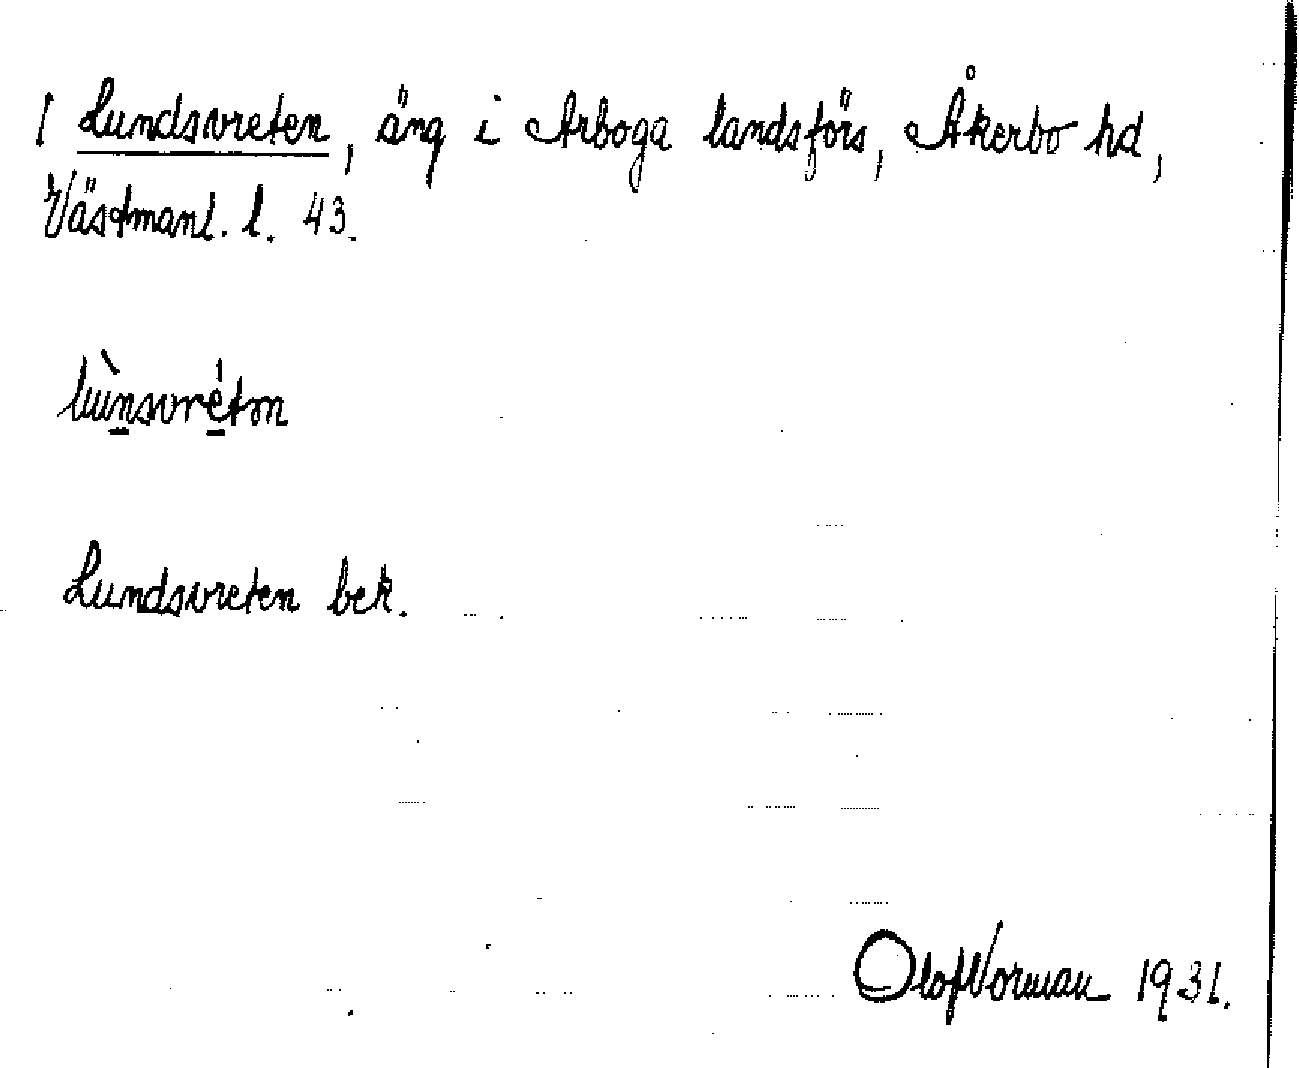 1 Lundsvreten, äng i Arboga landsförs, Åkerbo hd,
Västmanl. l. 43.
lùnsvrétn
Lundsvreten bek.
Olof Norman 1931.